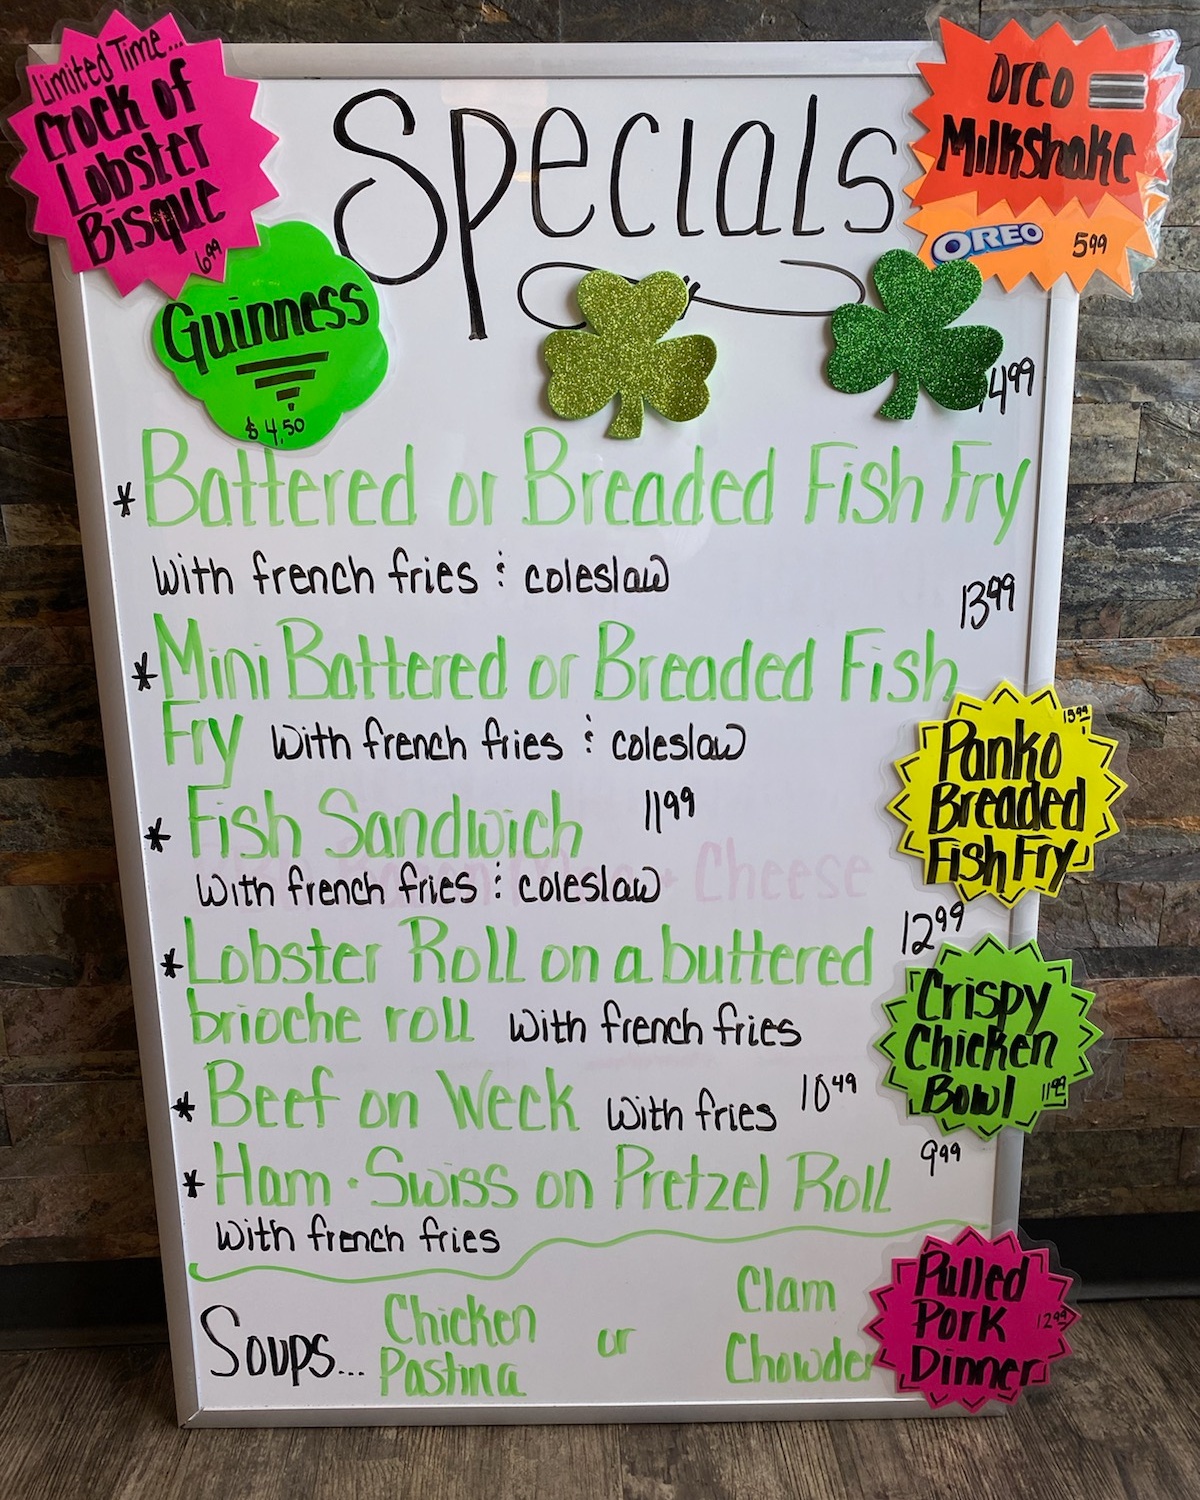 Limited Time...
Crock of
Lobster
Bisque
6.99
Specials
Oreo
Milkshake
OREO 5.99
Guinness
$ 4.50
14.99
* Battered or Breaded Fish Fry
with french fries & coleslaw
13.99
* Mini Battered or Breaded Fish
Fry with french fries & coleslaw
15.99
Panko
Breaded
Fish Fry
* Fish Sandwich 11.99
with french fries & coleslaw
Cheese
12.99
* Lobster Roll on a buttered
brioche roll with french fries
Crispy
Chicken
Bowl 11.99
* Beef on Weck with fries 10.49
9.99
* Ham · Swiss on Pretzel Roll
with french fries
Soups... Chicken
Pastina
or
Clam
Chowder
Pulled
Pork 12.99
Dinner